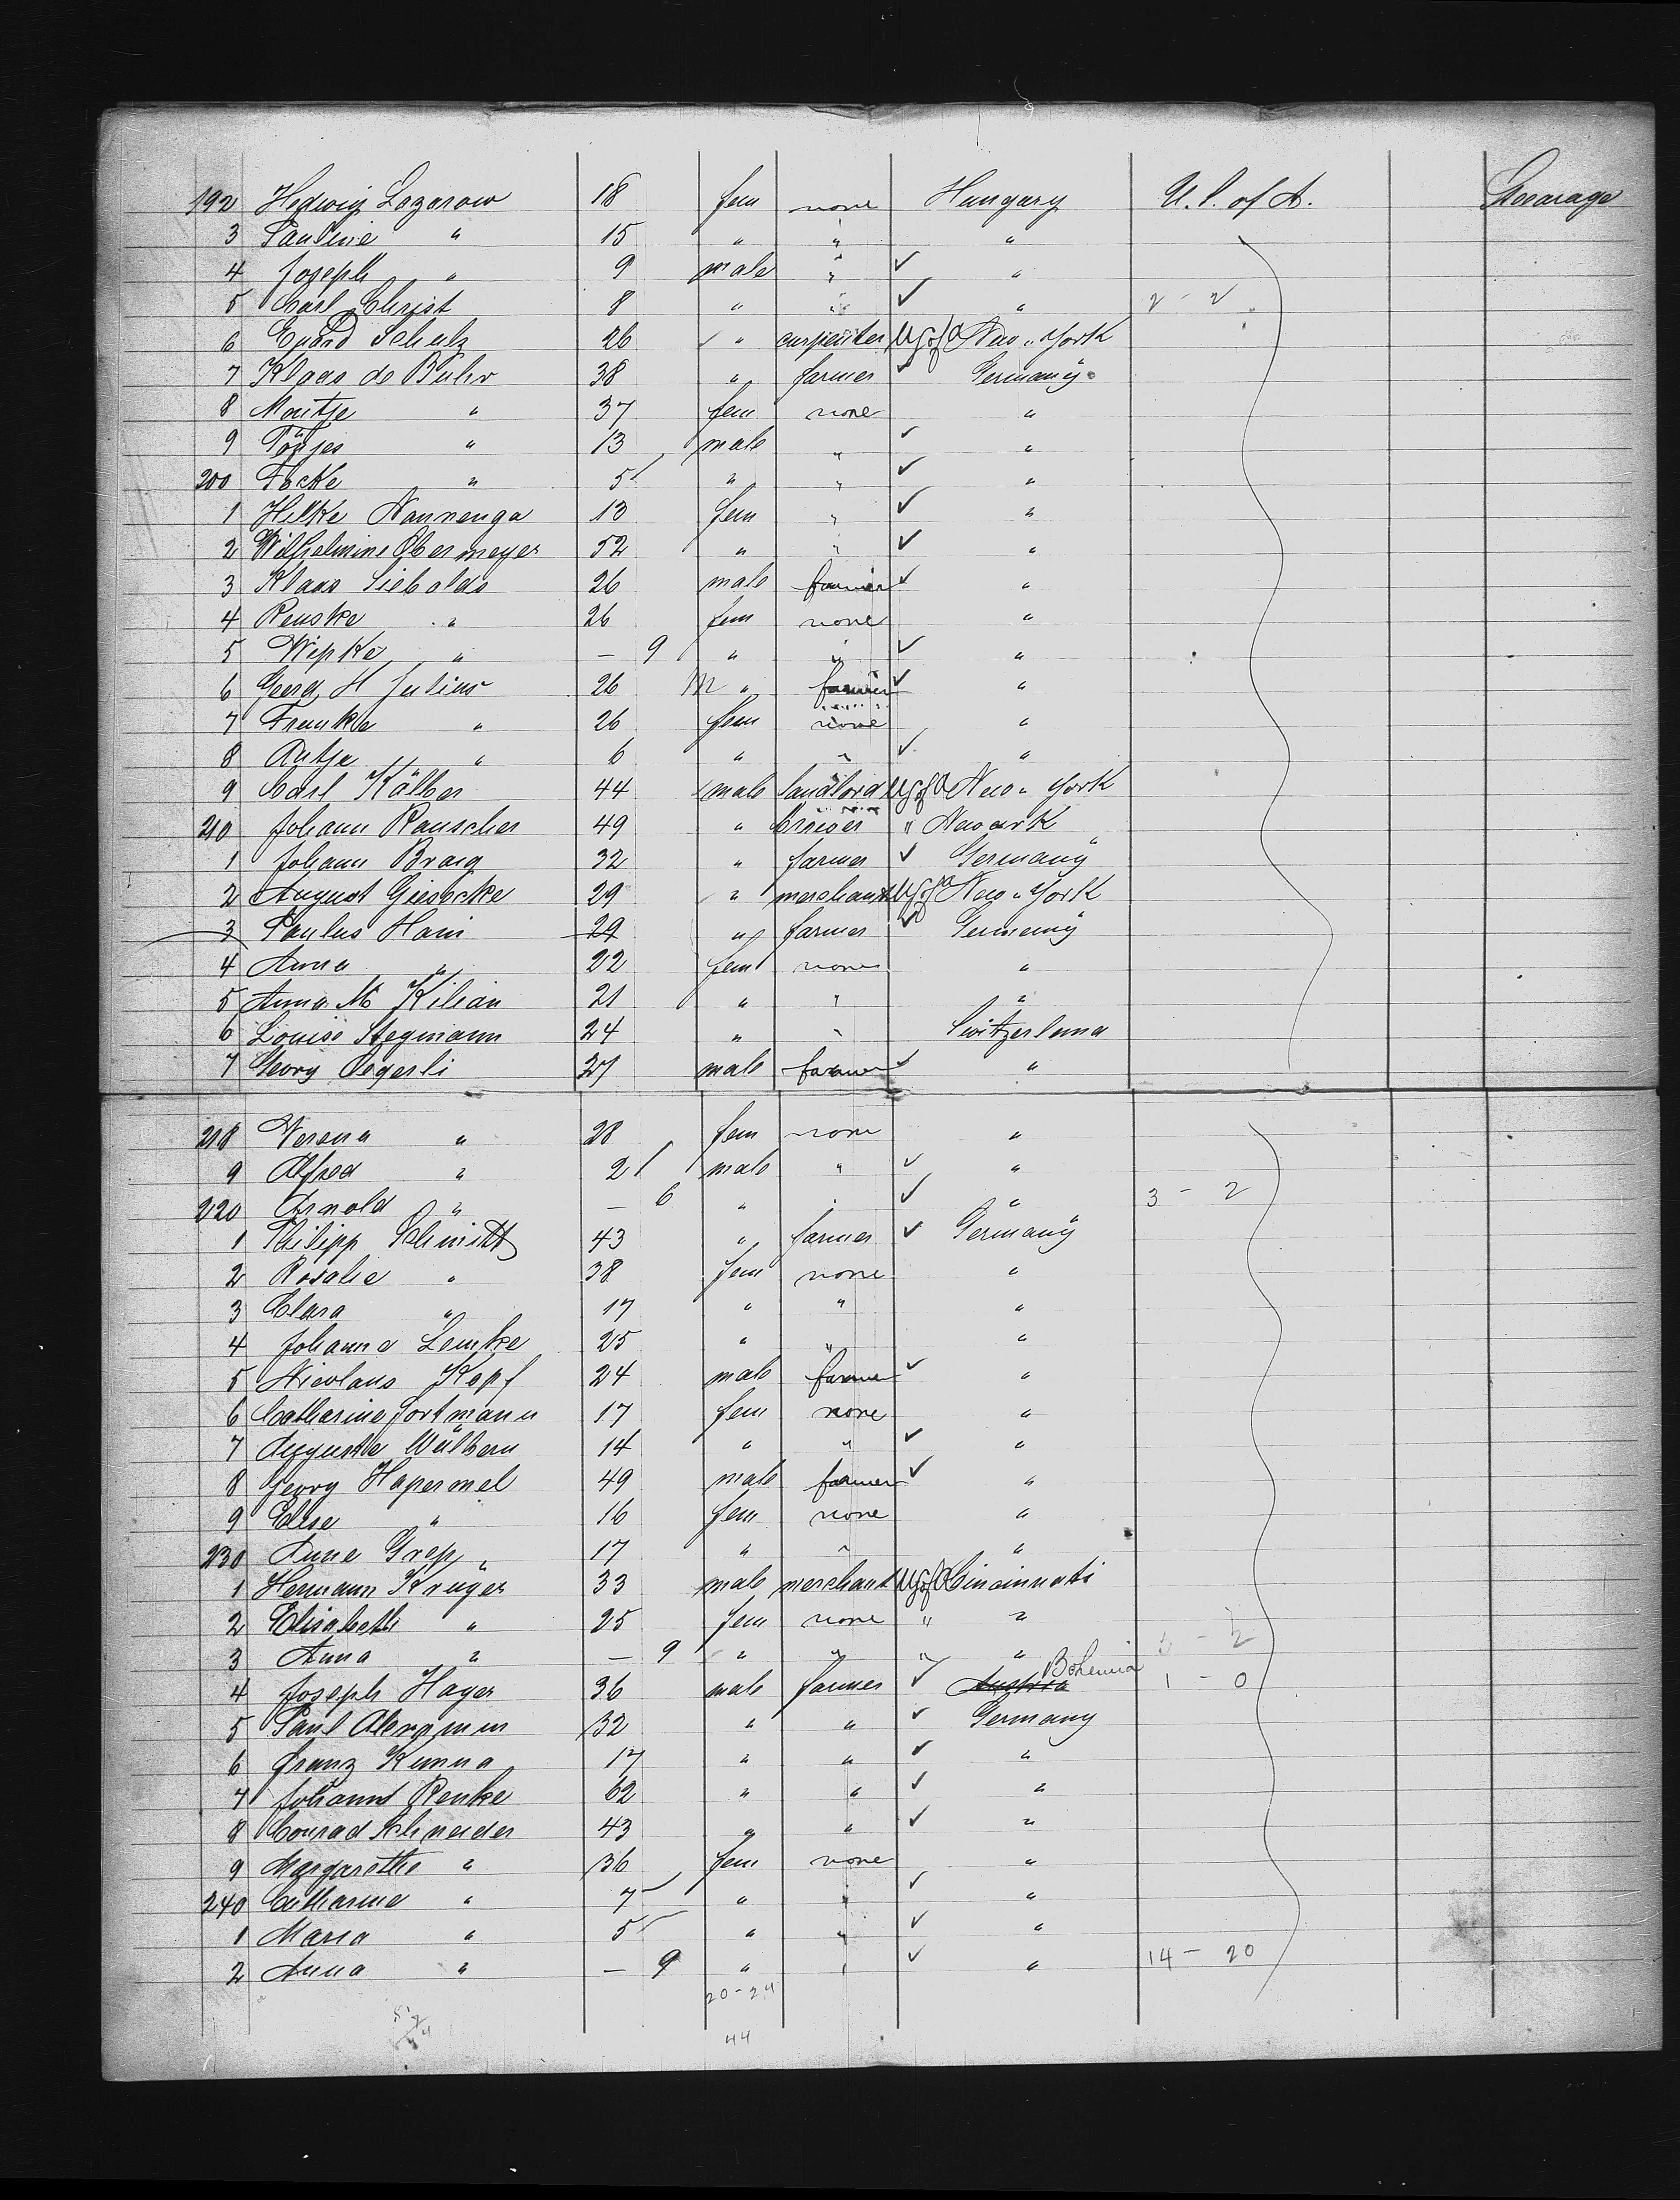 192 Hedwig Lazarow 18 fem none Hungary U. S. of A. Steerage
3 Pauline " 15 " " "
4 Joseph " 9 male " ✓ "
5 Carl Christ 8 " " ✓ " 2 - 2
6 Eduard Schulz 26 " carpenter US of A New-York
7 Klaas de Buhr 38 " farmer ✓ Germany
8 Mantje " 37 fem none "
9 Tönjes " 13 male " ✓ "
200 Focke " 5 " " ✓ "
1 Hilke Nannenga 13 fem " ✓ "
2 Wilhelmine Obermeyer 52 " " ✓ "
3 Klaas Siebolds 26 male farmer ✓ "
4 Renske " 26 fem none "
5 Wipke " — 9 " " ✓ "
6 Geerd H Julius 26 M " farmer ✓ "
7 Frauke " 26 fem none "
8 Antje " 6 " " ✓ "
9 Carl Kälber 44 male landlord US of A New-York
210 Johann Rauscher 49 " brewer " Newark
1 Johann Braig 32 " farmer ✓ Germany
2 August Giesecke 29 " merchant US of A New-York
3 Paulus Hain 29 " farmer ✓ Germany
4 Anna " 22 fem none "
5 Anna M Kilian 21 " " "
6 Louise Stegmann 24 " " Switzerland
7 Georg Oegerli 27 male farmer ✓ "
218 Verena " 28 fem none "
9 Alfred " 2 male " ✓ "
220 Arnold " — 6 " " ✓ " 3 - 2
1 Philipp Schmitt 43 " farmer ✓ Germany
2 Rosalie " 38 fem none "
3 Clara " 17 " " "
4 Johanne Lemke 25 " " "
5 Nicolaus Kopf 24 male farmer ✓ "
6 Catharine Fortmann 17 fem none "
7 Auguste Wülbern 14 " " ✓ "
8 Georg Hapermel 49 male farmer ✓ "
9 Elise " 16 fem none "
230 Anne Grep 17 " " "
1 Hermann Krüger 33 male merchant US of A Cincinnati
2 Elisabeth " 25 fem none " "
3 Anna " — 9 " " " "
4 Joseph Hager 36 male farmer ✓ Austria Bohemia 1 - 0
5 Paul 32 " " ✓ Germany
6 Franz Kunna 17 " " ✓ "
7 Johann Renke 62 " " ✓ "
8 Conrad Schneider 43 " " ✓ "
9 Margarethe " 36 fem none "
240 Catharine " 7 " " ✓ "
1 Maria " 5 " " ✓ "
2 Anna " — 9 " " ✓ " 14 - 20
20 - 24
44